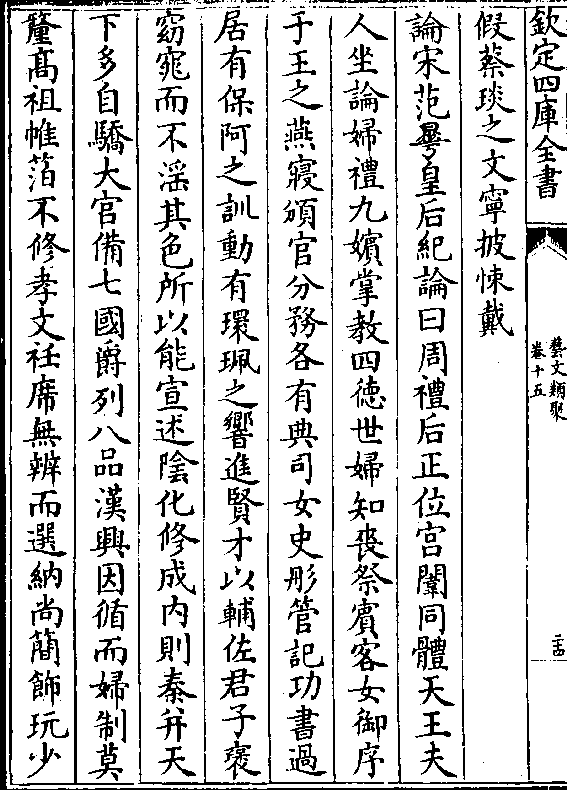 欽定四庫全書
藝文類聚
卷十五
二十四
假蔡琰之文寧披悚戴
論宋范曅皇后紀論曰周禮后正位宫闈同體天王夫
人坐論婦禮九嬪掌教四德世婦知喪祭賓客女御序
于王之燕寢頒官分務各有典司女史彤管記功書過
居有保阿之訓動有環珮之響進賢才以輔佐君子褒
窈窕而不淫其色所以能宣述陰化修成内則秦并天
下多自驕大官備七國爵列八品漢興因循而婦制莫
釐高祖帷箔不修孝文袵席無辨而選納尚簡飾玩少